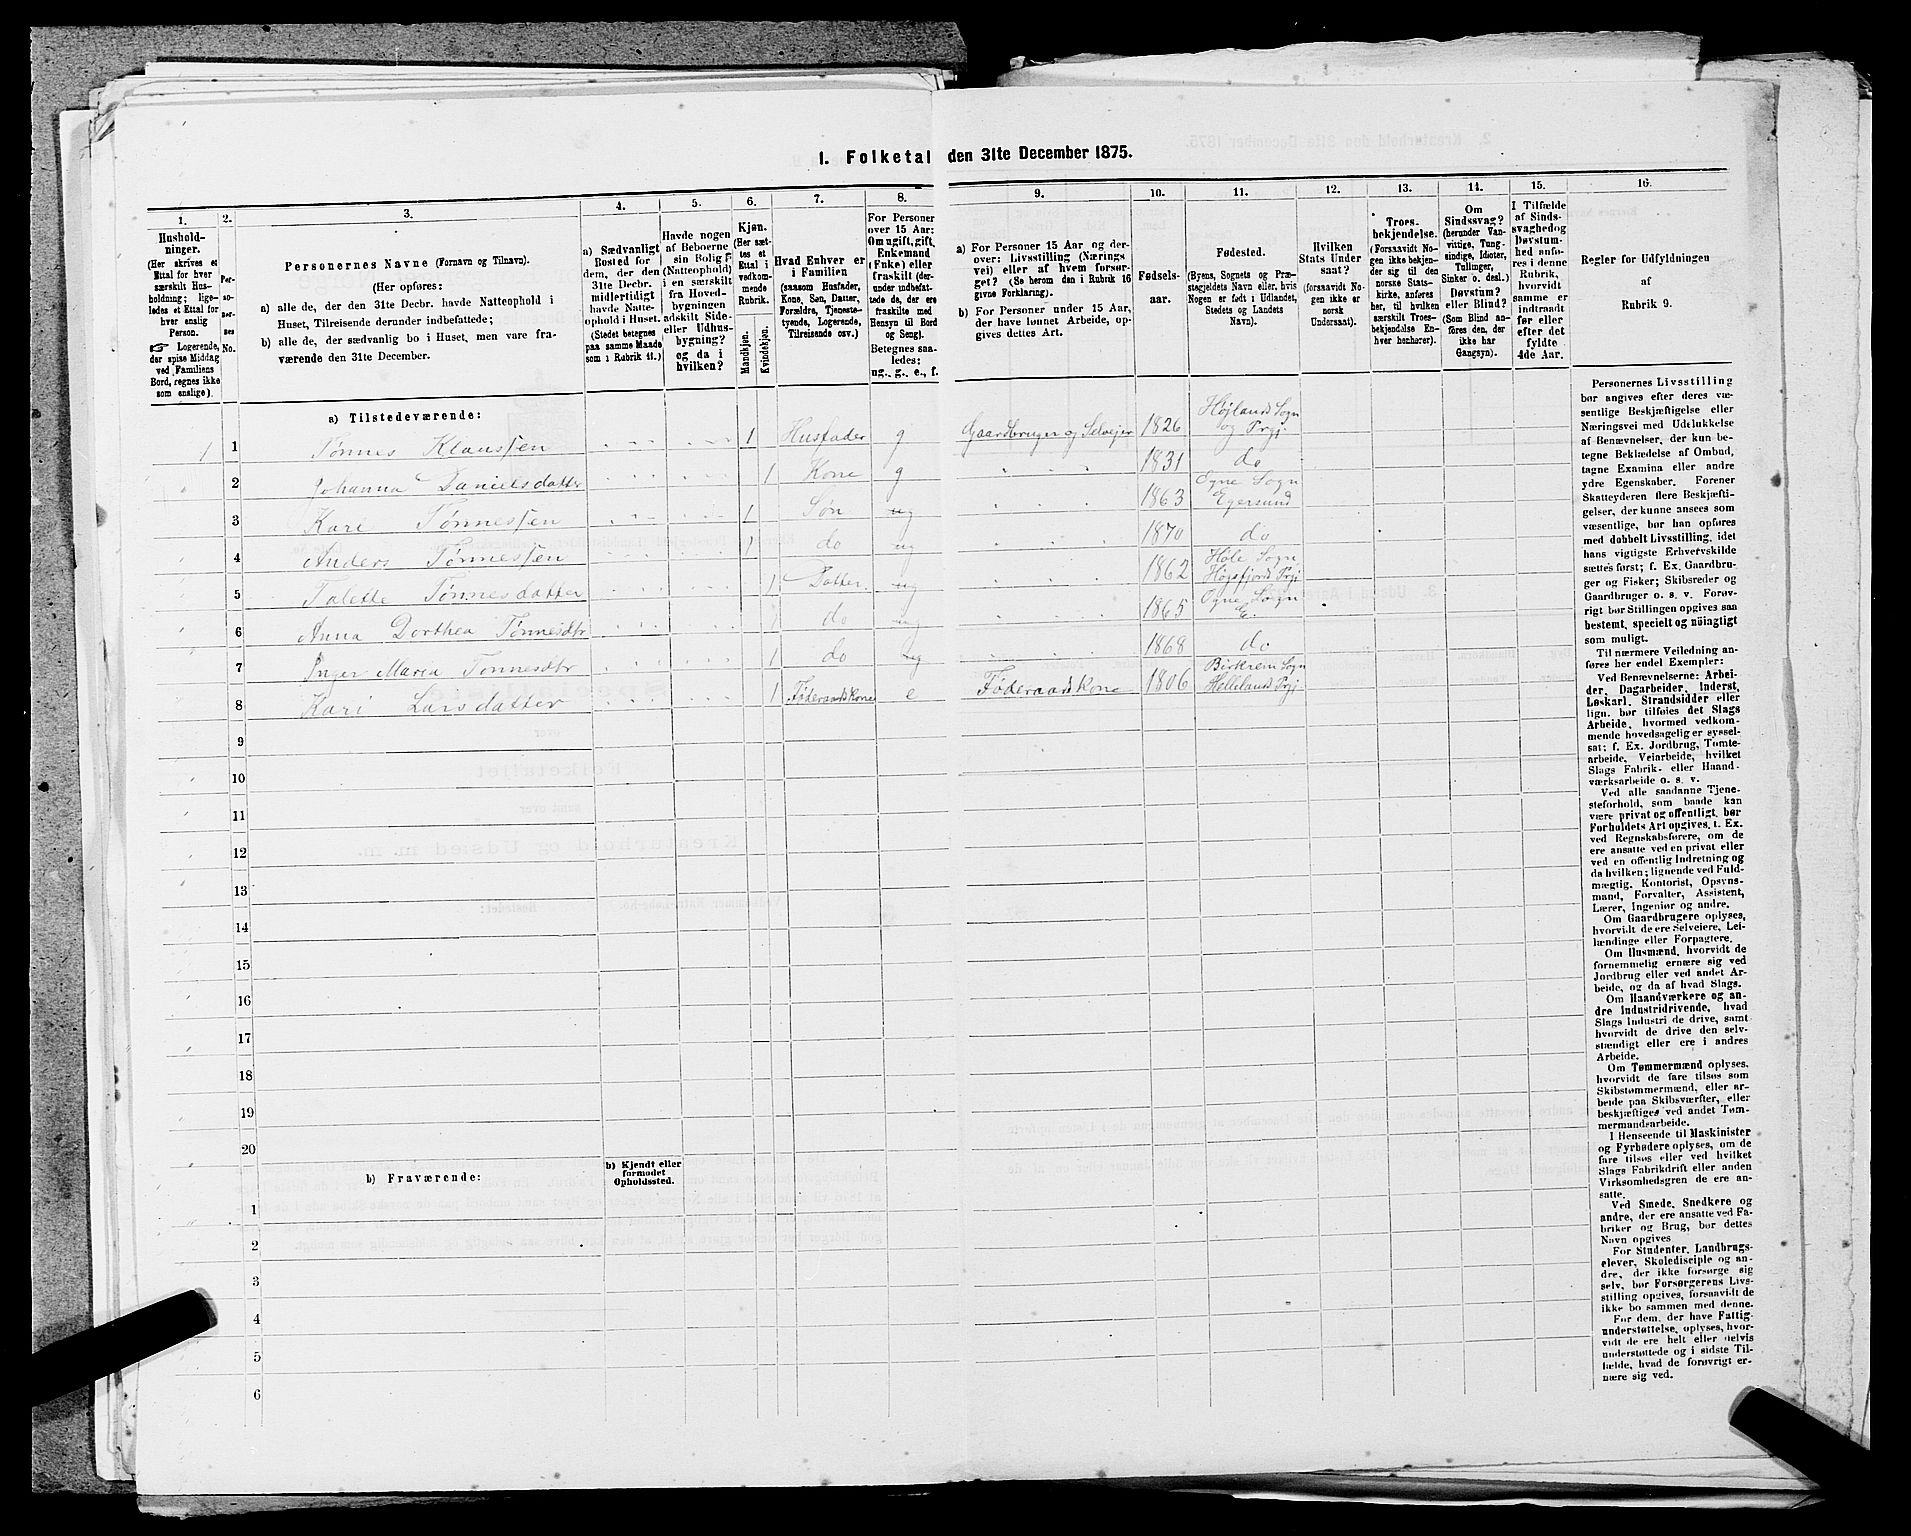 1. Folketal den 31te December 1875.
1.
2.
3.
4.
5.
6.
7.
8.
9.
10.
11.
12.
13.
14.
15.
16.
Hushold-
ninger.
(Her skrives et
Ettal for hver
særskilt Hus-
holdning; lige-
ledes et Ettal for
hver enslig
Person.
☞ Logerende,
der spise Middag
ved Familiens
Bord, regnes ikke
som enslige).
Per-
so-
ner-
nes
No.
Personernes Navne (Fornavn og Tilnavn).
(Her opføres:
a) alle de, der den 31te Decbr. havde Natteophold i
Huset, Tilreisende derunder indbefattede;
b) alle de, der sædvanlig bo i Huset, men vare fra-
værende den 31te December.
a) Sædvanligt
Bosted for
dem, der den
31te Decbr.
midlertidigt
havde Natte-
ophold i Huset.
(Stedet betegnes
paa samme Maade
som i Rubrik 11.)
Havde nogen
af Beboerne
sin Bolig
(Natteophold)
i en særskilt
fra Hoved-
bygningen
adskilt Side-
eller Udhus-
bygning?
og da i
hvilken?
Kjøn.
(Her sæt-
tes et
Ettal i
vedkom-
mende
Rubrik.
Mandkjøn.
Kvindekjøn.
Hvad Enhver er
i Familien
(saasom Husfader,
Kone, Søn, Datter,
Forældre, Tjeneste-
tyende, Logerende,
Tilreisende osv.)
For Personer
over 15 Aar:
Om ugift, gift,
Enkemand
(Enke) eller
fraskilt (der-
under indbefat-
tede de, der ere
fraskilte med
Hensyn til Bord
og Seng).
Betegnes saa-
ledes:
ug., g., e., f.
a) For Personer 15 Aar og der-
over: Livsstilling (Nærings
vei) eller af hvem forsør-
get? (Se herom den i Rubrik 16
givne Forklaring).
b) For Personer under 15 Aar,
der have lønnet Arbeide, op-
gives dettes Art.
Fødsels-
aar.
Fødested.
(Byens, Sognets og Præ-
stegjeldets Navn eller, hvis
Nogen er født i Udlandet,
Stedets og Landets
Navn).
Hvilken
Stats Under
saat?
(foraavidt No-
gen ikke er
norsk
Undersaat).
Troes-
bekjendelse.
(Forsaavidt No-
gen ikke bekjen-
der sig til den
norske Stats-
kirke, anføres
her, til hvilken
særskilt Troes-
bekjendelse En-
hver henhører).
Om
Sindssvag?
(herunder Van-
vittige, Tung-
sindige, Idioter,
Tullinger,
Sinker o. desl.)
Døvstum?
eller Blind?
(Som Blind an-
føres den, der
ikke har
Gangsyn).
I Tilfælde
af Sinds-
svaghed og
Døvstum-
hed anfø-
res i denne
Rubrik,
hvorvidt
samme er
indtraadt
før eller
efter det
fyldte
4de Aar.
Regler for Udfyldningen
af
Rubrik 9.
a) Tilstedeværende:
1 1 Tønnes Klaussen 1 Husfader g Gaardbruger og Selvejer 1826 Højlands Sogn og Prgj.
2 Johanna Danielsdatter 1 Kone g 1831 do
3 Kari Tønnessen 1 Søn ug 1863 Ogne Sogn Egersund
4 Anders Tønnessen 1 do ug 1870 do
5 Talette Tønnesdatter 1 Datter ug 1862 Høle Sogn Høgsfjord Prgj
6 Anna Dorthea Tønnesdtr 1 do ug 1865 Ogne Sogn E.
7 Inger Maria Tønnesdtr 1 do ug 1868 do
8 Kari Larsdatter 1 Føderaadskone e Føderaadskone 1806 Birkrem Sogn Hellelands Prgj
9
10
11
12
13
14
15
16
17
18
19
20
b) Fraværende:
b) Kjendt eller
formodet
Opholdssted.
1
2
3
4
5
6
Personernes Livsstilling
bør angives efter deres væ-
sentlige Beskjæftigelse eller
Næringsvei med Udelukkelse
af Benævnelser, der kun be-
tegne Beklædelse af Ombud,
tagne Examina eller andre
ydre Egenskaber. Forener
Skatteyderen flere Beskjæfti-
gelser, der kunne ansees som
væsentlige, bør han opføres
med dobbelt Livsstilling, idet
hans vigtigste Erhvervskilde
sættes først; f. Ex. Gaardbru-
ger og Fisker; Skibsreder og
Gaardbruger o. s. v. Forøv-
rigt bør Stillingen opgives saa
bestemt, specielt og nøiagtigt
som muligt.
Til nærmere Veiledning an-
føres her endel Exempler:
Ved Benævnelserne: Arbei-
der, Dagarbeider, Inderst,
Løskarl, Strandsidder eller
lign. bør tilføies det Slags
Arbeide, hvormed vedkom-
mende hovedsagelig er syssel-
sat; f. Ex. Jordbrug, Tømte-
arbeide, Veiarbeide, hvilket
Slags Fabrik- eller Haand-
værksarbeide o. s. v.
Ved alle saadanne Tjene-
steforhold, som baade kan
være privat og offentligt, bør
Forholdets Art opgives, t. Ex.
ved Regnskabsførere, om de
ere ansatte ved en privat eller
ved en offentlig Indretning og
da hvilken; lignende ved Fuld-
mægtig, Kontorist, Opsyns-
mand, Forvalter, Assistent,
Lærer, Ingeniør og andre.
Om Gaardbrugere oplyses,
hvorvidt de ere Selveiere, Lei-
lændinge eller Forpagtere.
Om Husmænd, hvorvidt de
fornemmelig ernære sig ved
Jordbrug eller ved andet Ar-
beide, og da af hvad Slags.
Om Haandværkere og an-
dre Industridrivende, hvad
Slags Industri de drive, samt
hvorvidt de drive den selv-
stændigt eller ere i andres
Arbeide.
Om Tømmermænd oplyses,
hvorvidt de fare tilsøs som
Skibstømmermænd, eller ar-
beide paa Skibsværfter, eller
beskjæftiges ved andet Tøm-
mermandsarbeide.
I Henseende til Maskinister
og Fyrbødere oplyses, om de
fare tilsøs eller ved hvilket
Slags Fabrikdrift eller anden
Virksomhedsgren de ere an-
satte.
Ved Smede, Snedkere og
andre, der ere ansatte ved Fa-
briker og Brug, bør dettes
Navn opgives
For Studenter, Landbrugs-
elever, Skoledisciple og an-
dre, der ikke forsørge sig
selv, bør Forsørgerens Livs-
stilling opgives, forsaavidt de
ikke bo sammen med denne.
For dem, der have Fattig-
understøttelse, oplyses, hvor-
vidt de ere helt eller delvis
understøttede og i sidste Til-
fælde, hvad de forøvrigt er-
nære sig ved.